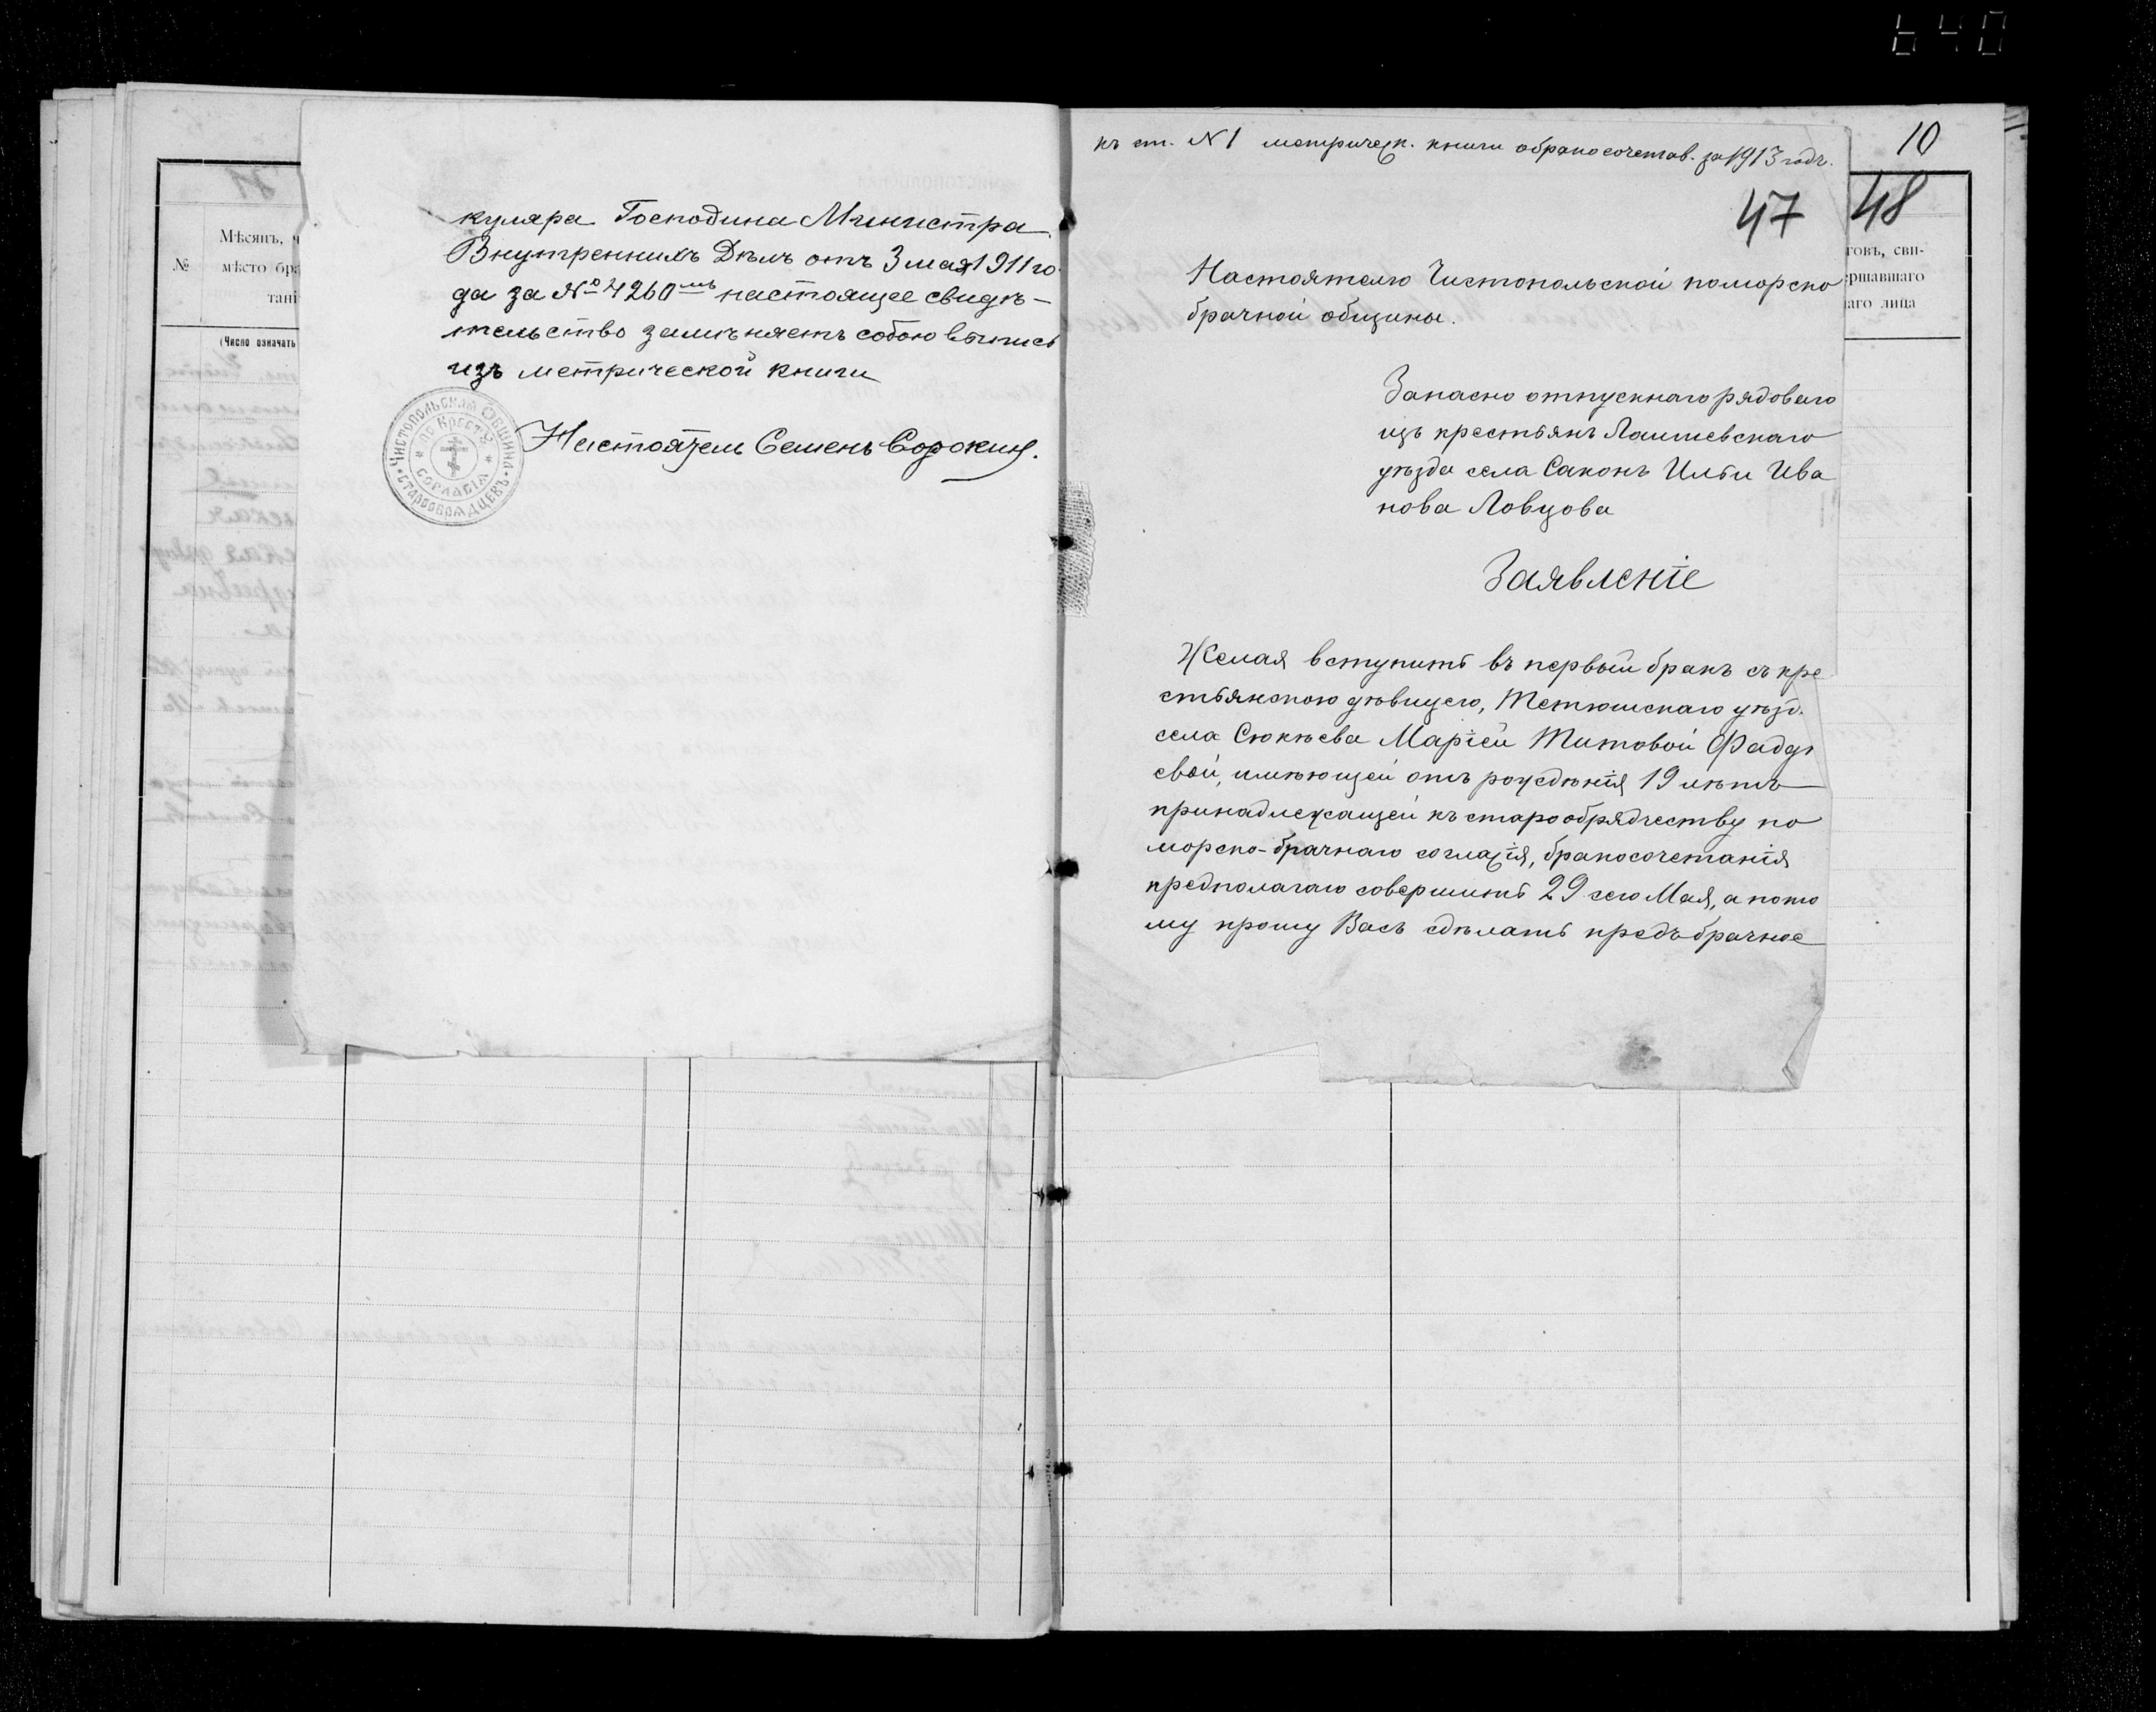 640
№
Мѣсяцъ, ч
мѣсто бра
тані
(Число означать
куляра Господина Министра
Внутреннихъ Дѣлъ отъ 3 мая 1911 го-
да за № 4260мъ настоящее свидѣ-
тельство замѣняетъ собою выпись
изъ метрической книги
Настоятель Семенъ Сорокин.
ЧИСТОПОЛЬСКАЯ ОБЩИНА СТАРООБРЯДЦЕВЪ
по Кресту
СОГЛАСІЯ
къ ст. N 1 метрическ. книги о бракосочетав. за 1913 годъ.
10
47
48
говъ, сви-
ершавшаго
наго лица
Настоятелю Чистопольской поморско
брачной общины.
Запасно отпускнаго рядоваго
изъ крестьянъ Лаишевскаго
уѣзда села Саконъ Ильи Ива
нова Ловцова
Заявленіе
Желая вступить въ первый бракъ съ кре
стьянскою дѣвицею, Тетюшскаго уѣзд.
села Сюкѣева Маріей Титовой Фадѣ
евой, имѣющей отъ рождѣнія 19 лѣтъ
принадлежащей къ старообрядчеству по
морско-брачнаго согласія, бракосочетанія
предполагаю совершить 29 сего Мая, а пото
му прошу Васъ сдѣлать предъбрачное